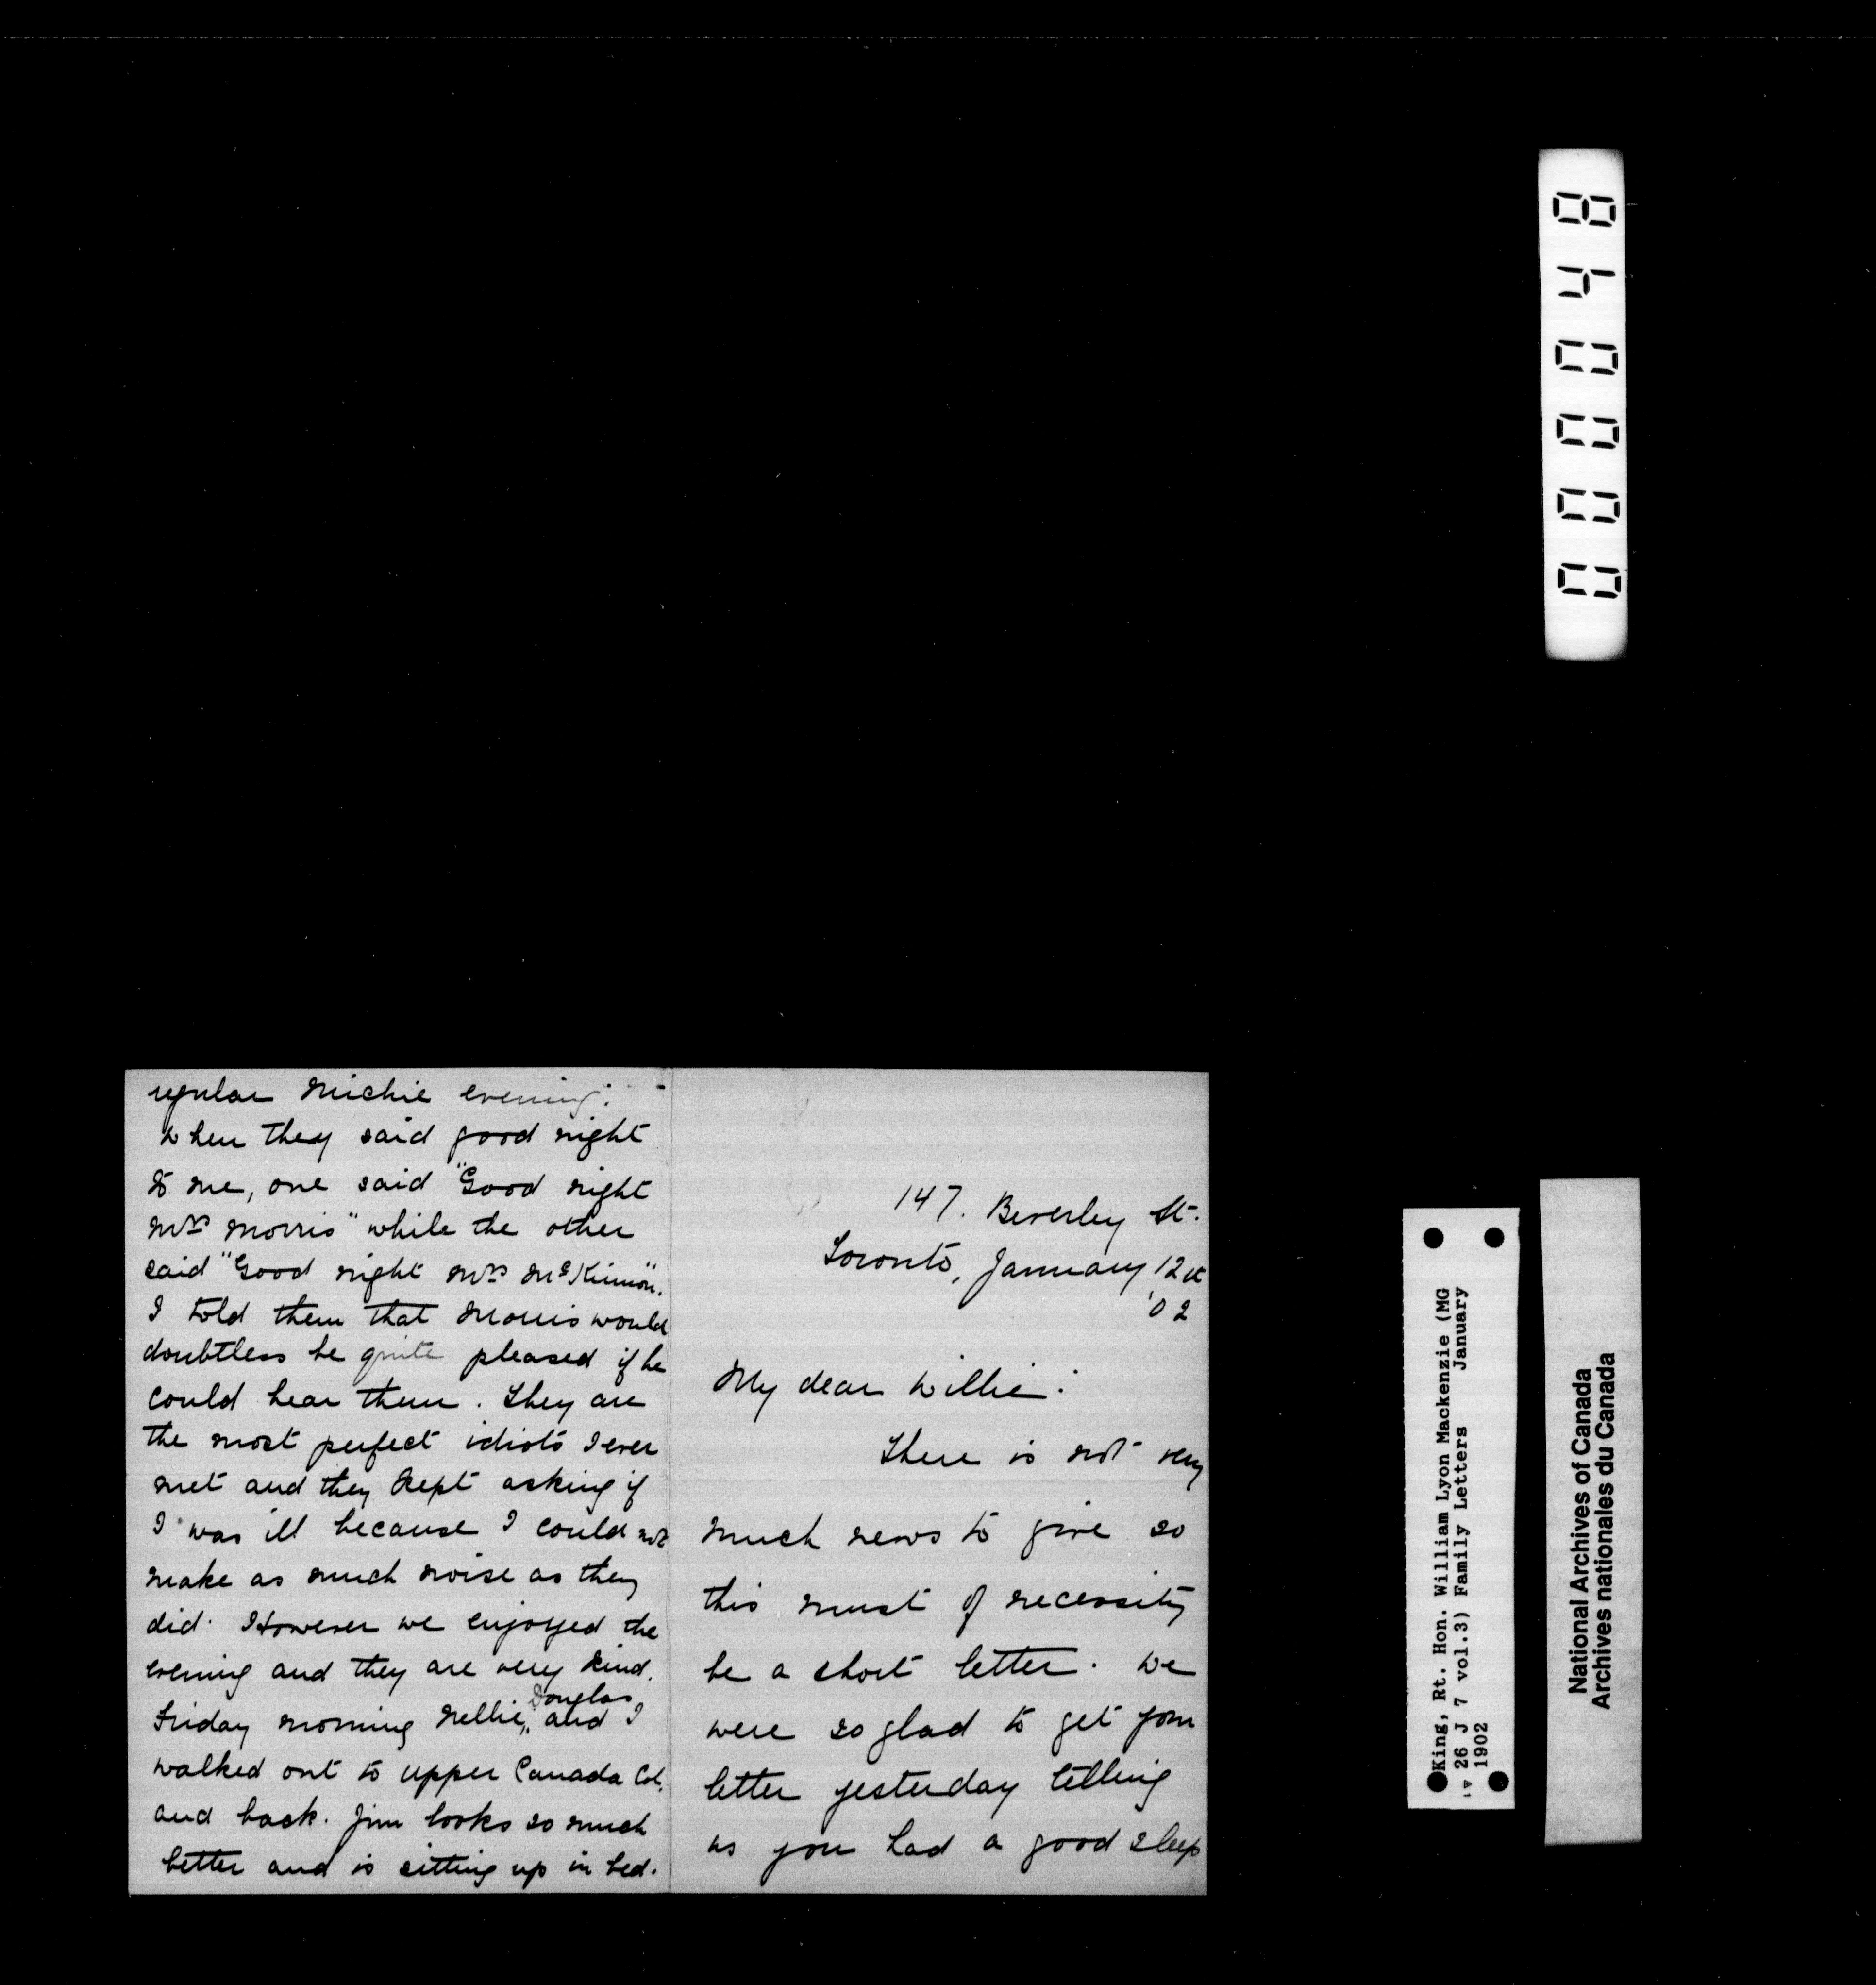 regular Michie evening.
When they said good night
to me, one said "Good night
Mrs Morris" while the other
said "Good night Mrs McKinnon".
I told them that Morris would
doubtless be quite pleased if he
could hear them. They are
the most perfect idiots I ever
met and they kept asking if
I was ill because I could not
make as much noise as they
did. However we enjoyed the
evening and they are very kind.
Friday morning Nellie, Douglas, and I
walked out to upper Canada Col.
and back. Jim looks so much
better and is sitting up in bed.
147. Beverley St.
Toronto, January 12th
'02
My dear Willie:
There is not very
much news to give so
this must of necessity
be a short letter. We
were so glad to get your
letter yesterday telling
us you had a good sleep
000048
King, Rt. Hon. William Lyon Mackenzie (MG
26 J 7 vol.3) Family Letters January
1902
National Archives of Canada
Archives nationales du Canada